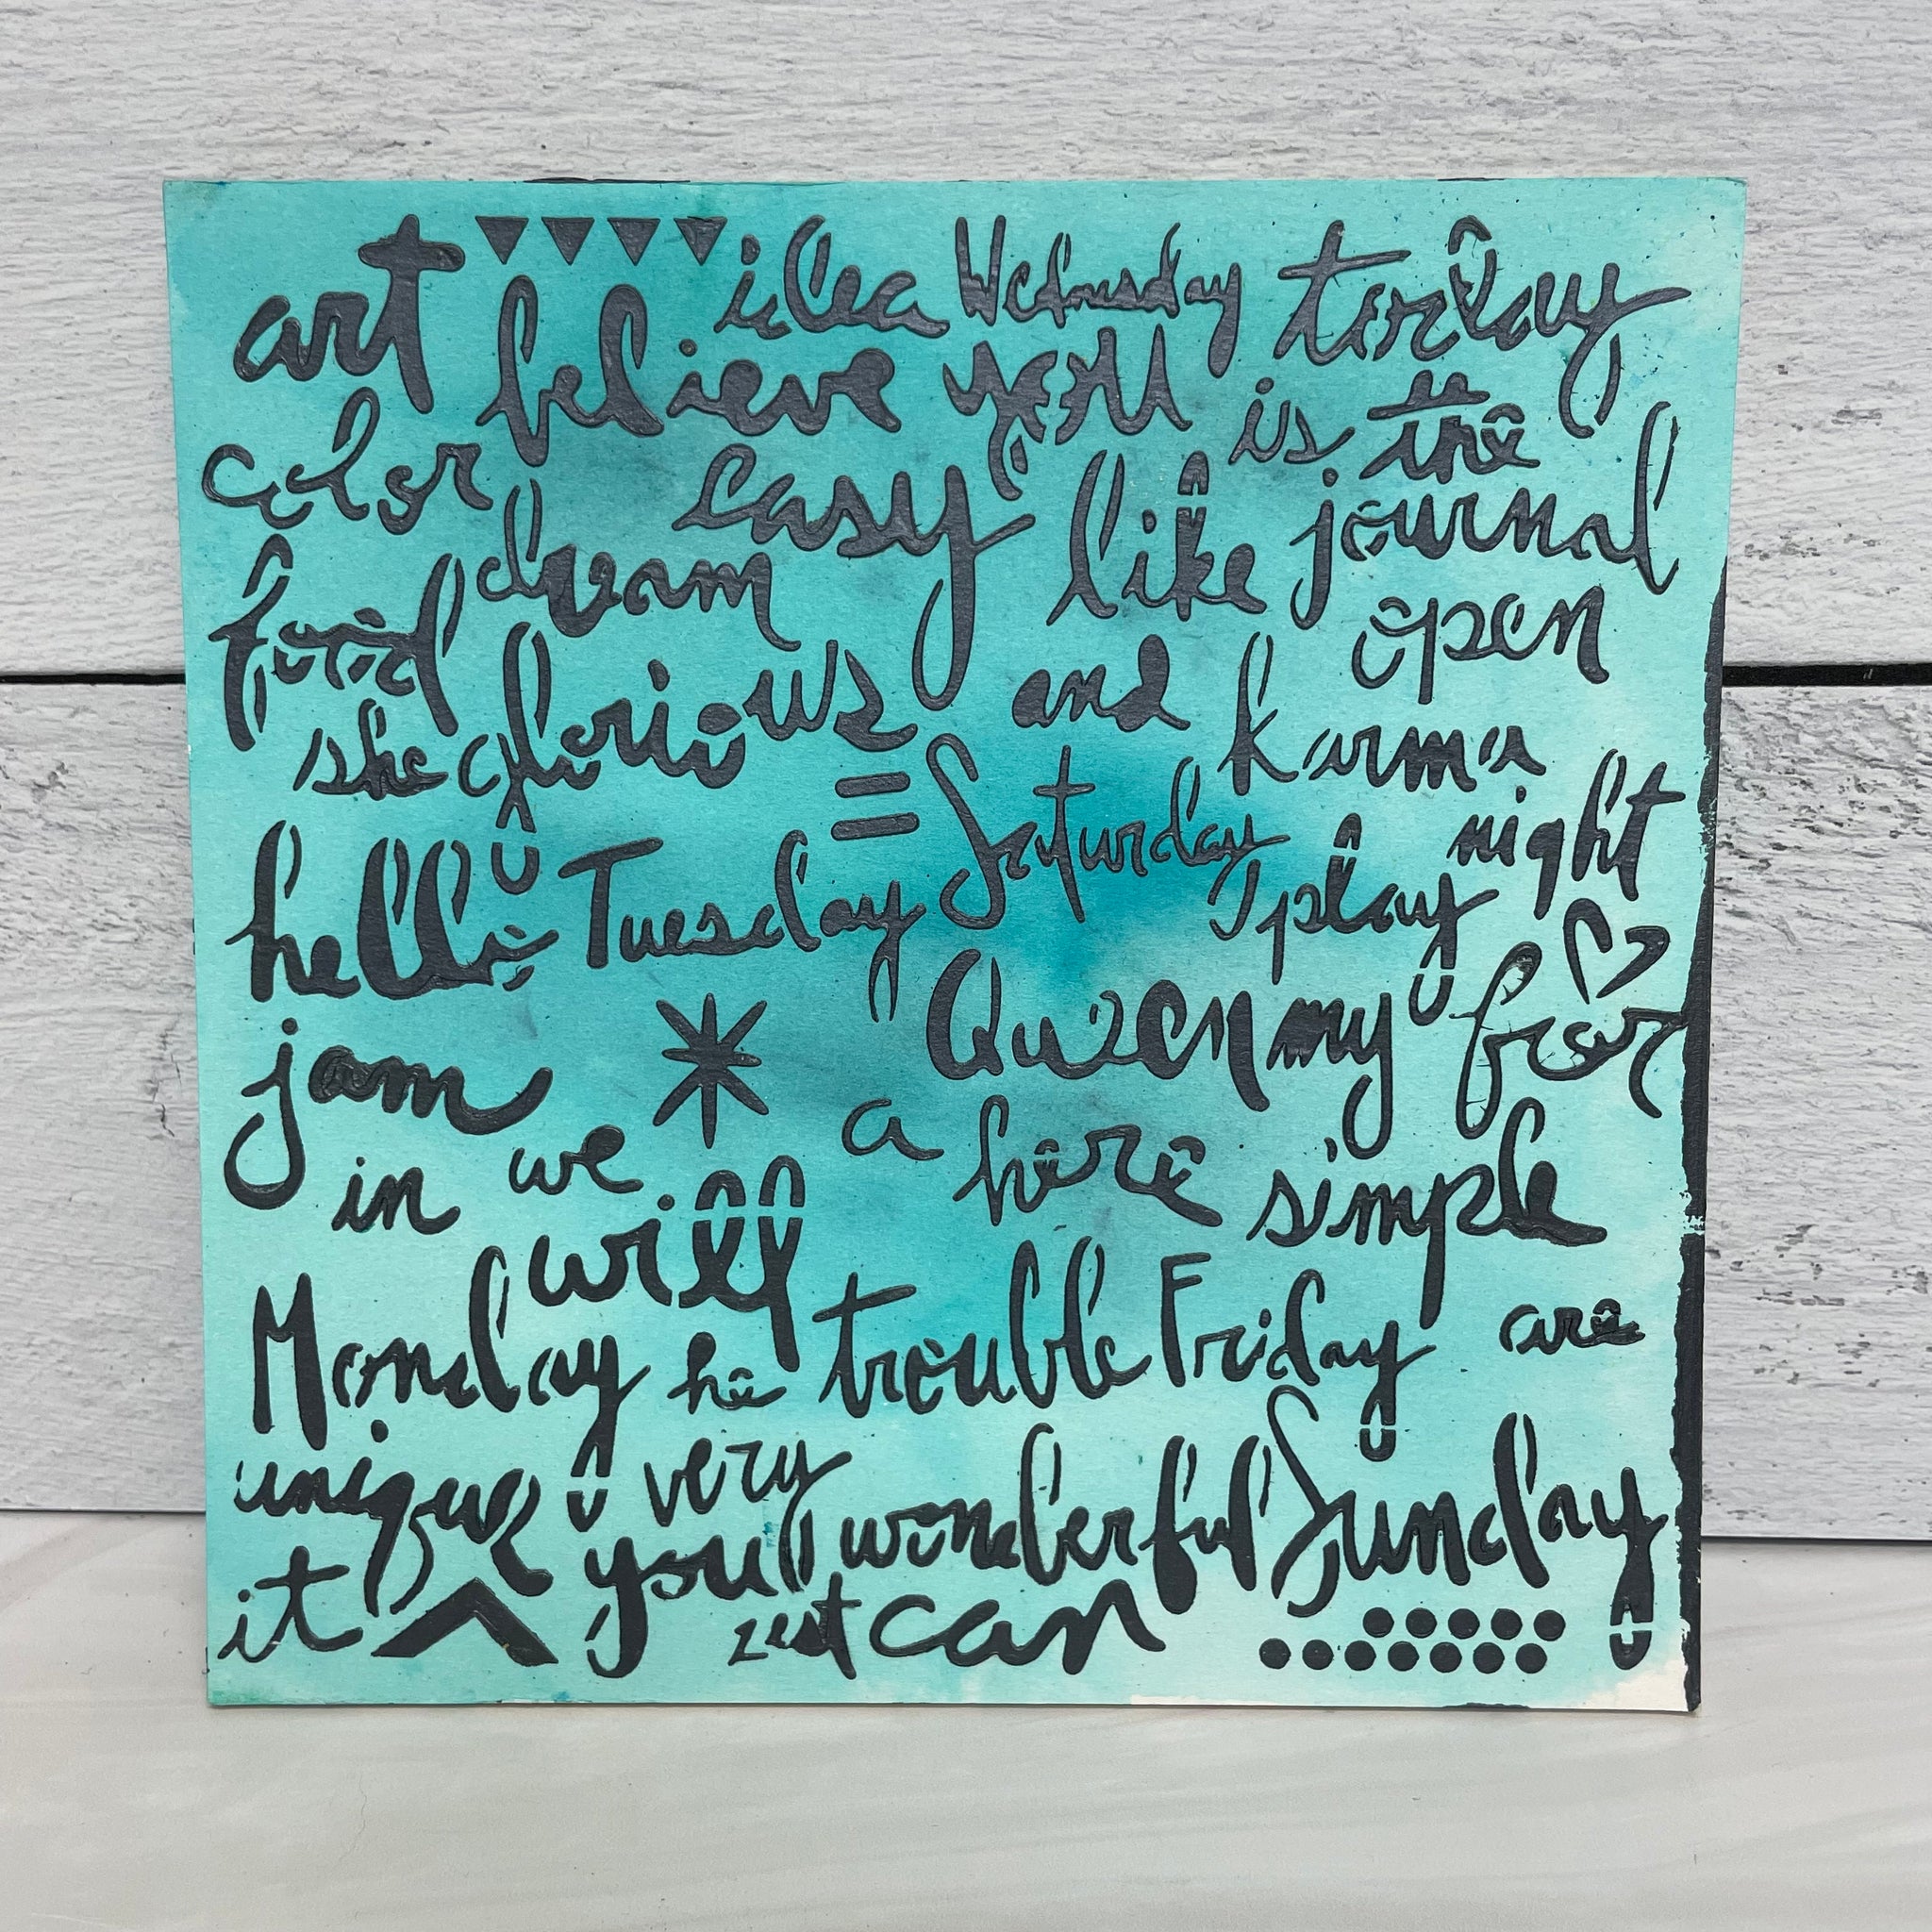 art idea Wednesday today
believe you is the
color easy like journal
food dream open
she glorious and karma
hello Tuesday Saturday play night
jam Queen my for
in we a here simple
will
Monday he trouble Friday are
unique very wonderful Sunday
it you zest can